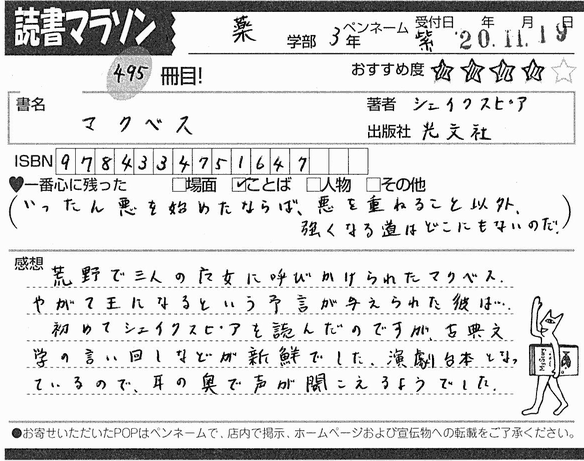 読書マラソン
薬 学部 3年 ペンネーム 紫 受付日 年 月 日 '20.11.19
495 冊目!
おすすめ度 ★★★★☆
書名 マクベス
著者 シェイクスピア
出版社 光文社
ISBN 9784334751647
♥一番心に残った □場面 ☑ことば □人物 □その他
(いったん悪を始めたならば、悪を重ねること以外、
強くなる道はどこにもないのだ。)
感想
荒野で三人の魔女に呼びかけられたマクベス。
やがて王になるという予言が与えられた彼は…。
初めてシェイクスピアを読んだのですが、古典文
学の言い回しなどが新鮮でした。演劇台本となっ
ているので、耳の奥で声が聞こえるようでした。
Mystery
●お寄せいただいたPOPはペンネームで、店内で掲示、ホームページおよび宣伝物への転載をご了承ください。